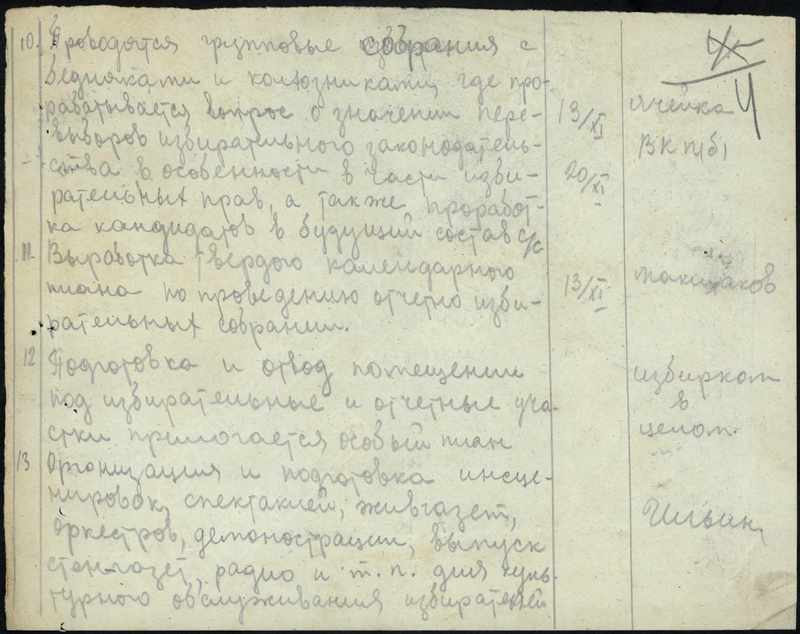 10. Проводятся групповые собрания с
бедняками и колхозниками, где про-
рабатывается вопрос о значении пере-
выборов избирательного законодатель-
ства в особенности в части изби-
рательных прав, а также проработ-
ка кандидатов в будущий состав с/с
13/XI
20/XI
ячейка
ВКП(б)
4
11. Выработка твердого календарного
плана по проведению отчетно изби-
рательных собрании.
13/XI
12 Подготовка и отвод помещении
под избирательные и отчетные уча-
стки прилогается особый план
избирком
в
целом.
13 Организация и подготовка инсце-
нировок, спектаклей, живгазет,
оркестров, демонострации, выпуск
стенгазет, радио и т.п. для куль-
турного обслуживания избирателей
Ильин,